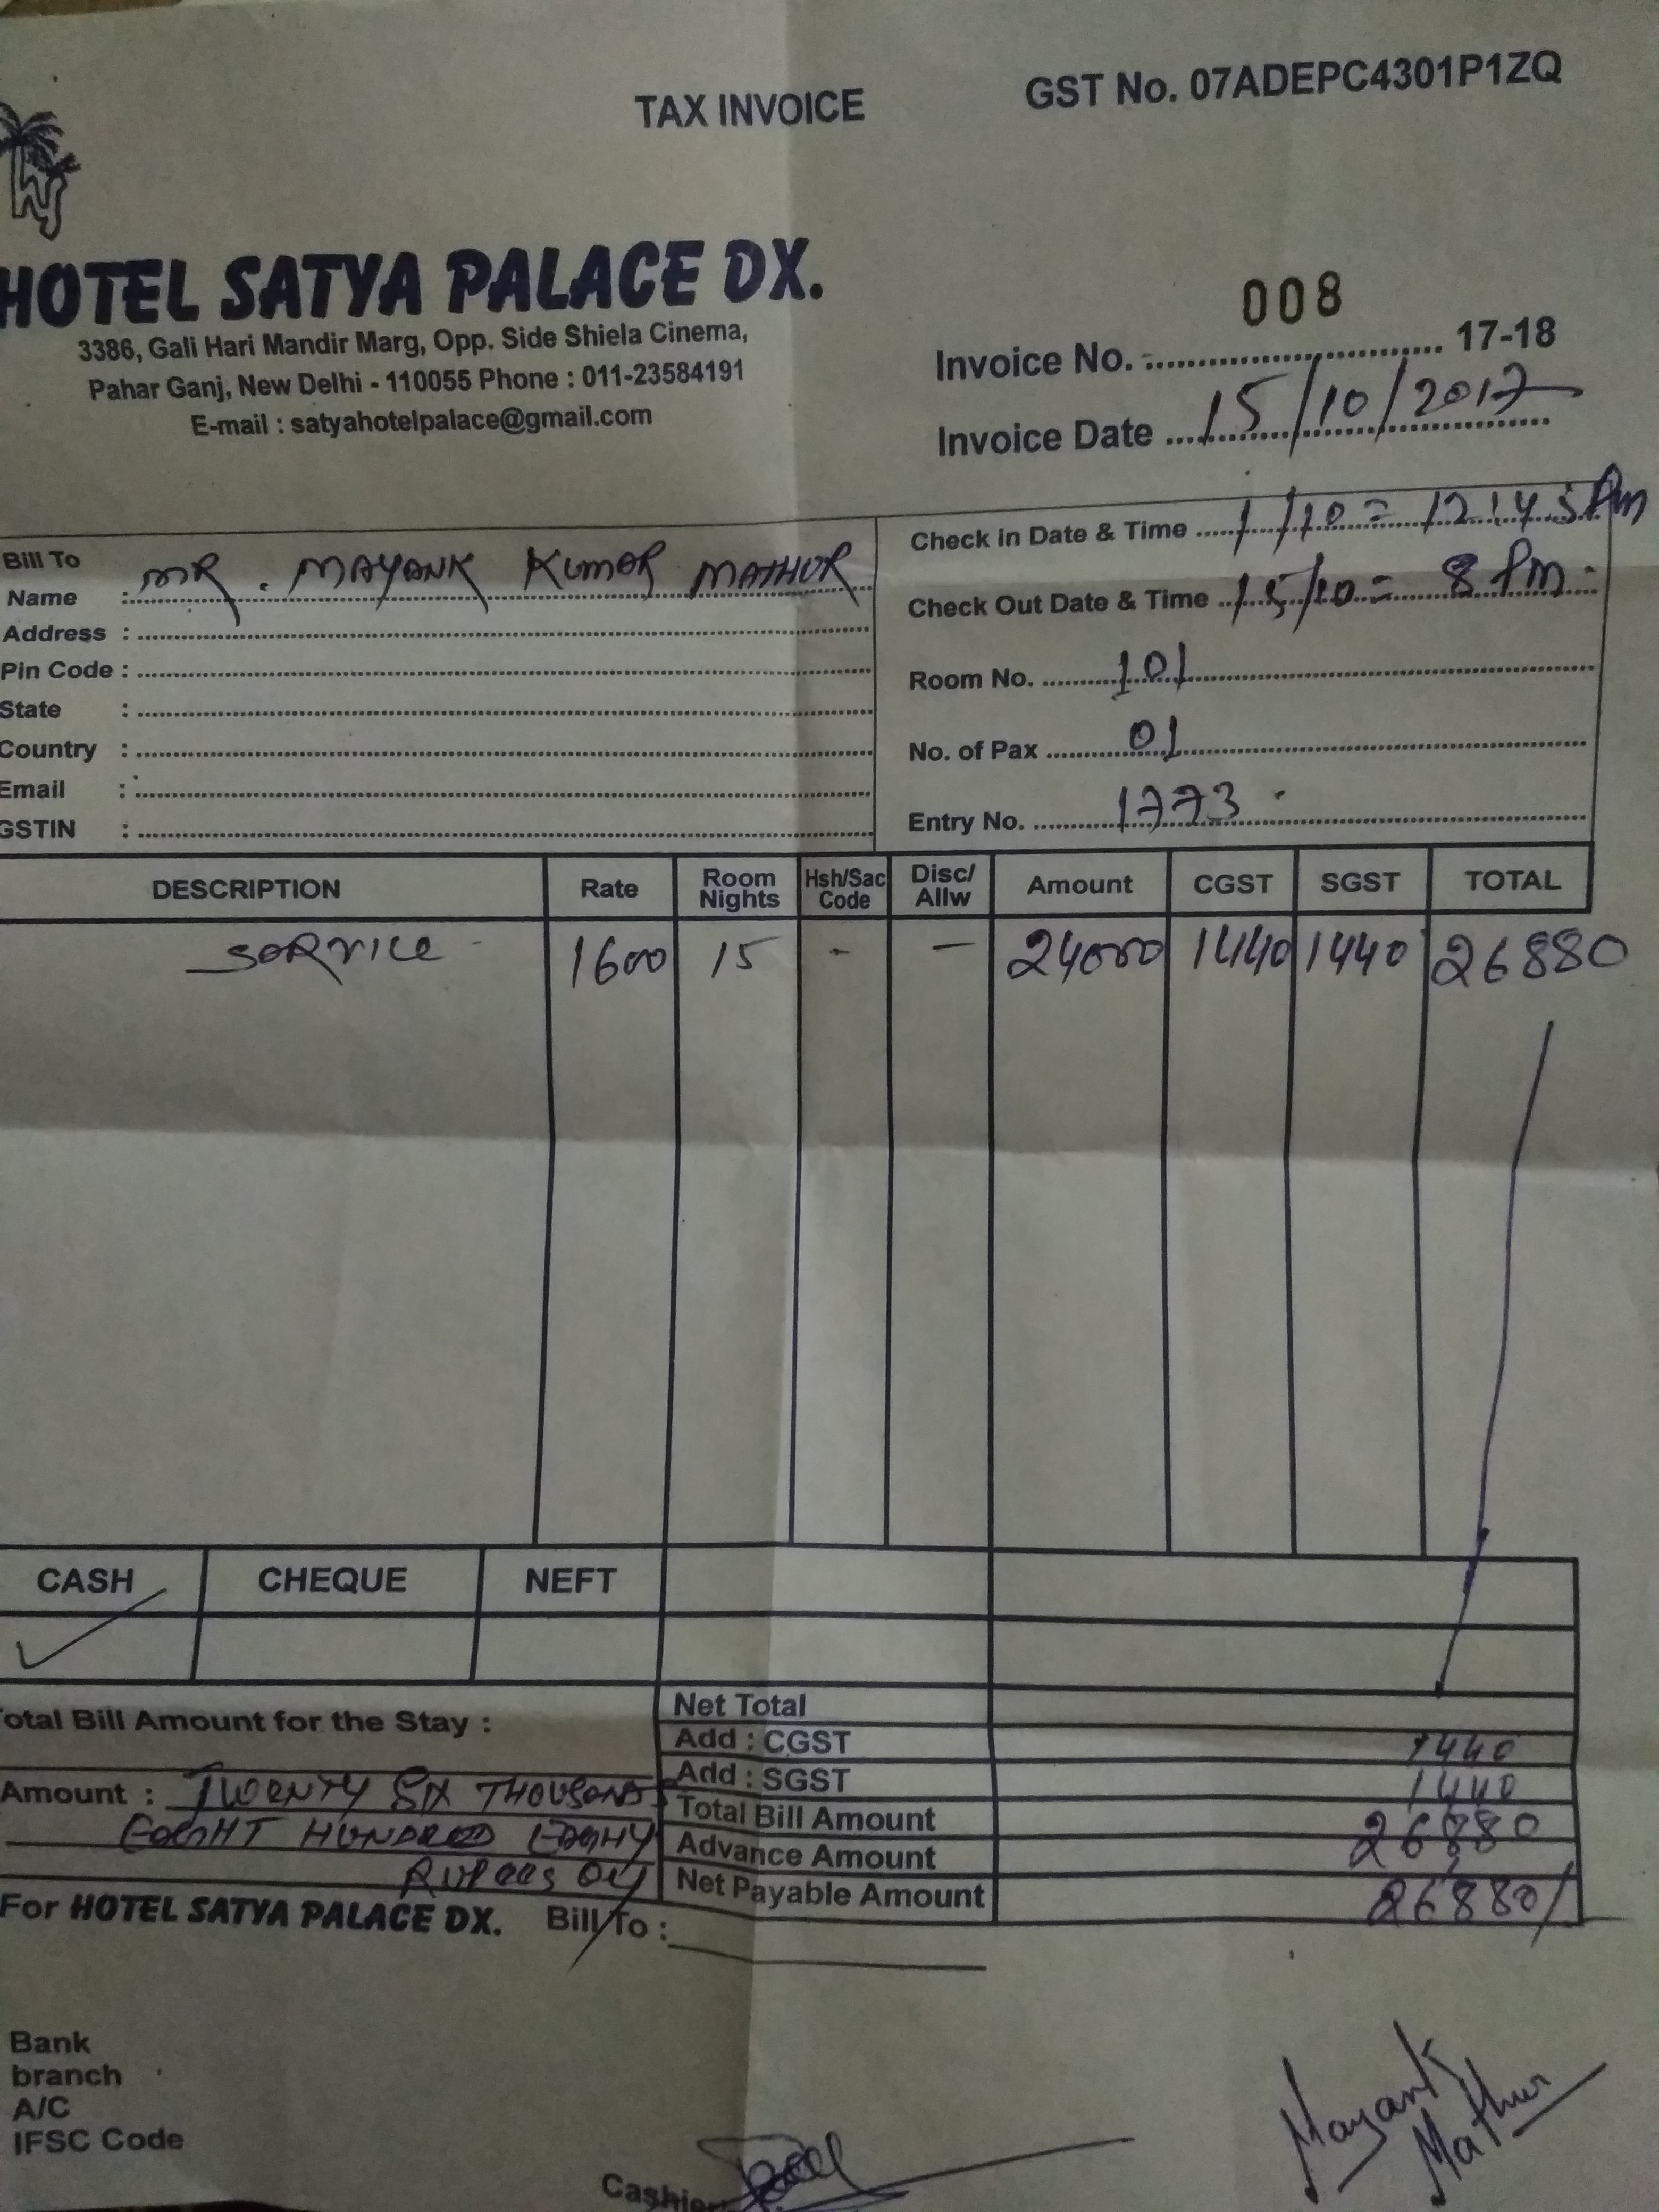 TAX INVOICE
GST No. 07ADEPC4301P1ZQ
HOTEL SATYA PALACE DX.
3386, Gali Hari Mandir Marg, Opp. Side Shiela Cinema,
Pahar Ganj, New Delhi - 110055 Phone : 011-23584191
E-mail : satyahotelpalace@gmail.com
Invoice No. 008 17-18
Invoice Date 15/10/2017
Bill To
Name : MR. MAYANK KUMAR MATHUR
Address :
Pin Code :
State :
Country :
Email :
GSTIN :
Check in Date & Time 1/10 = 12:45 Pm
Check Out Date & Time 15/10 = 8 Pm
Room No. 101
No. of Pax 01
Entry No. 1773
DESCRIPTION Rate Room Nights Hsh/Sac Code Disc/Allw Amount CGST SGST TOTAL
SERVICE 1600 15 - - 24000 1440 1440 26880
CASH CHEQUE NEFT
✓
otal Bill Amount for the Stay :
Amount : TWENTY SIX THOUSAND
EIGHT HUNDRED EIGHTY
RUPEES
Net Total
Add : CGST 1440
Add : SGST 1440
Total Bill Amount 26880
Advance Amount
Net Payable Amount 26880/
For HOTEL SATYA PALACE DX. Bill To :
Bank
branch
A/C
IFSC Code
Cashier
Mayank
Mathur